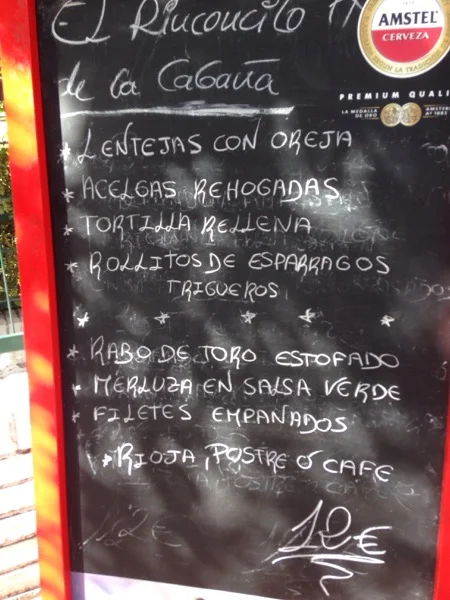 El Rinconcito
de la Cabaña
AMSTEL
CERVEZA
SEGÚN LA TRADICIÓN
PREMIUM QUALI
LA MEDALLA
DE ORO
AMSTER
Aº 1883
* LENTEJAS CON OREJA
* ACELGAS REHOGADAS
* TORTILLA RELLENA
* ROLLITOS DE ESPARRAGOS
TRIGUEROS
* RABO DE TORO ESTOFADO
* MERLUZA EN SALSA VERDE
* FILETES EMPANADOS
* RIOJA, POSTRE Ó CAFE
12€
12€